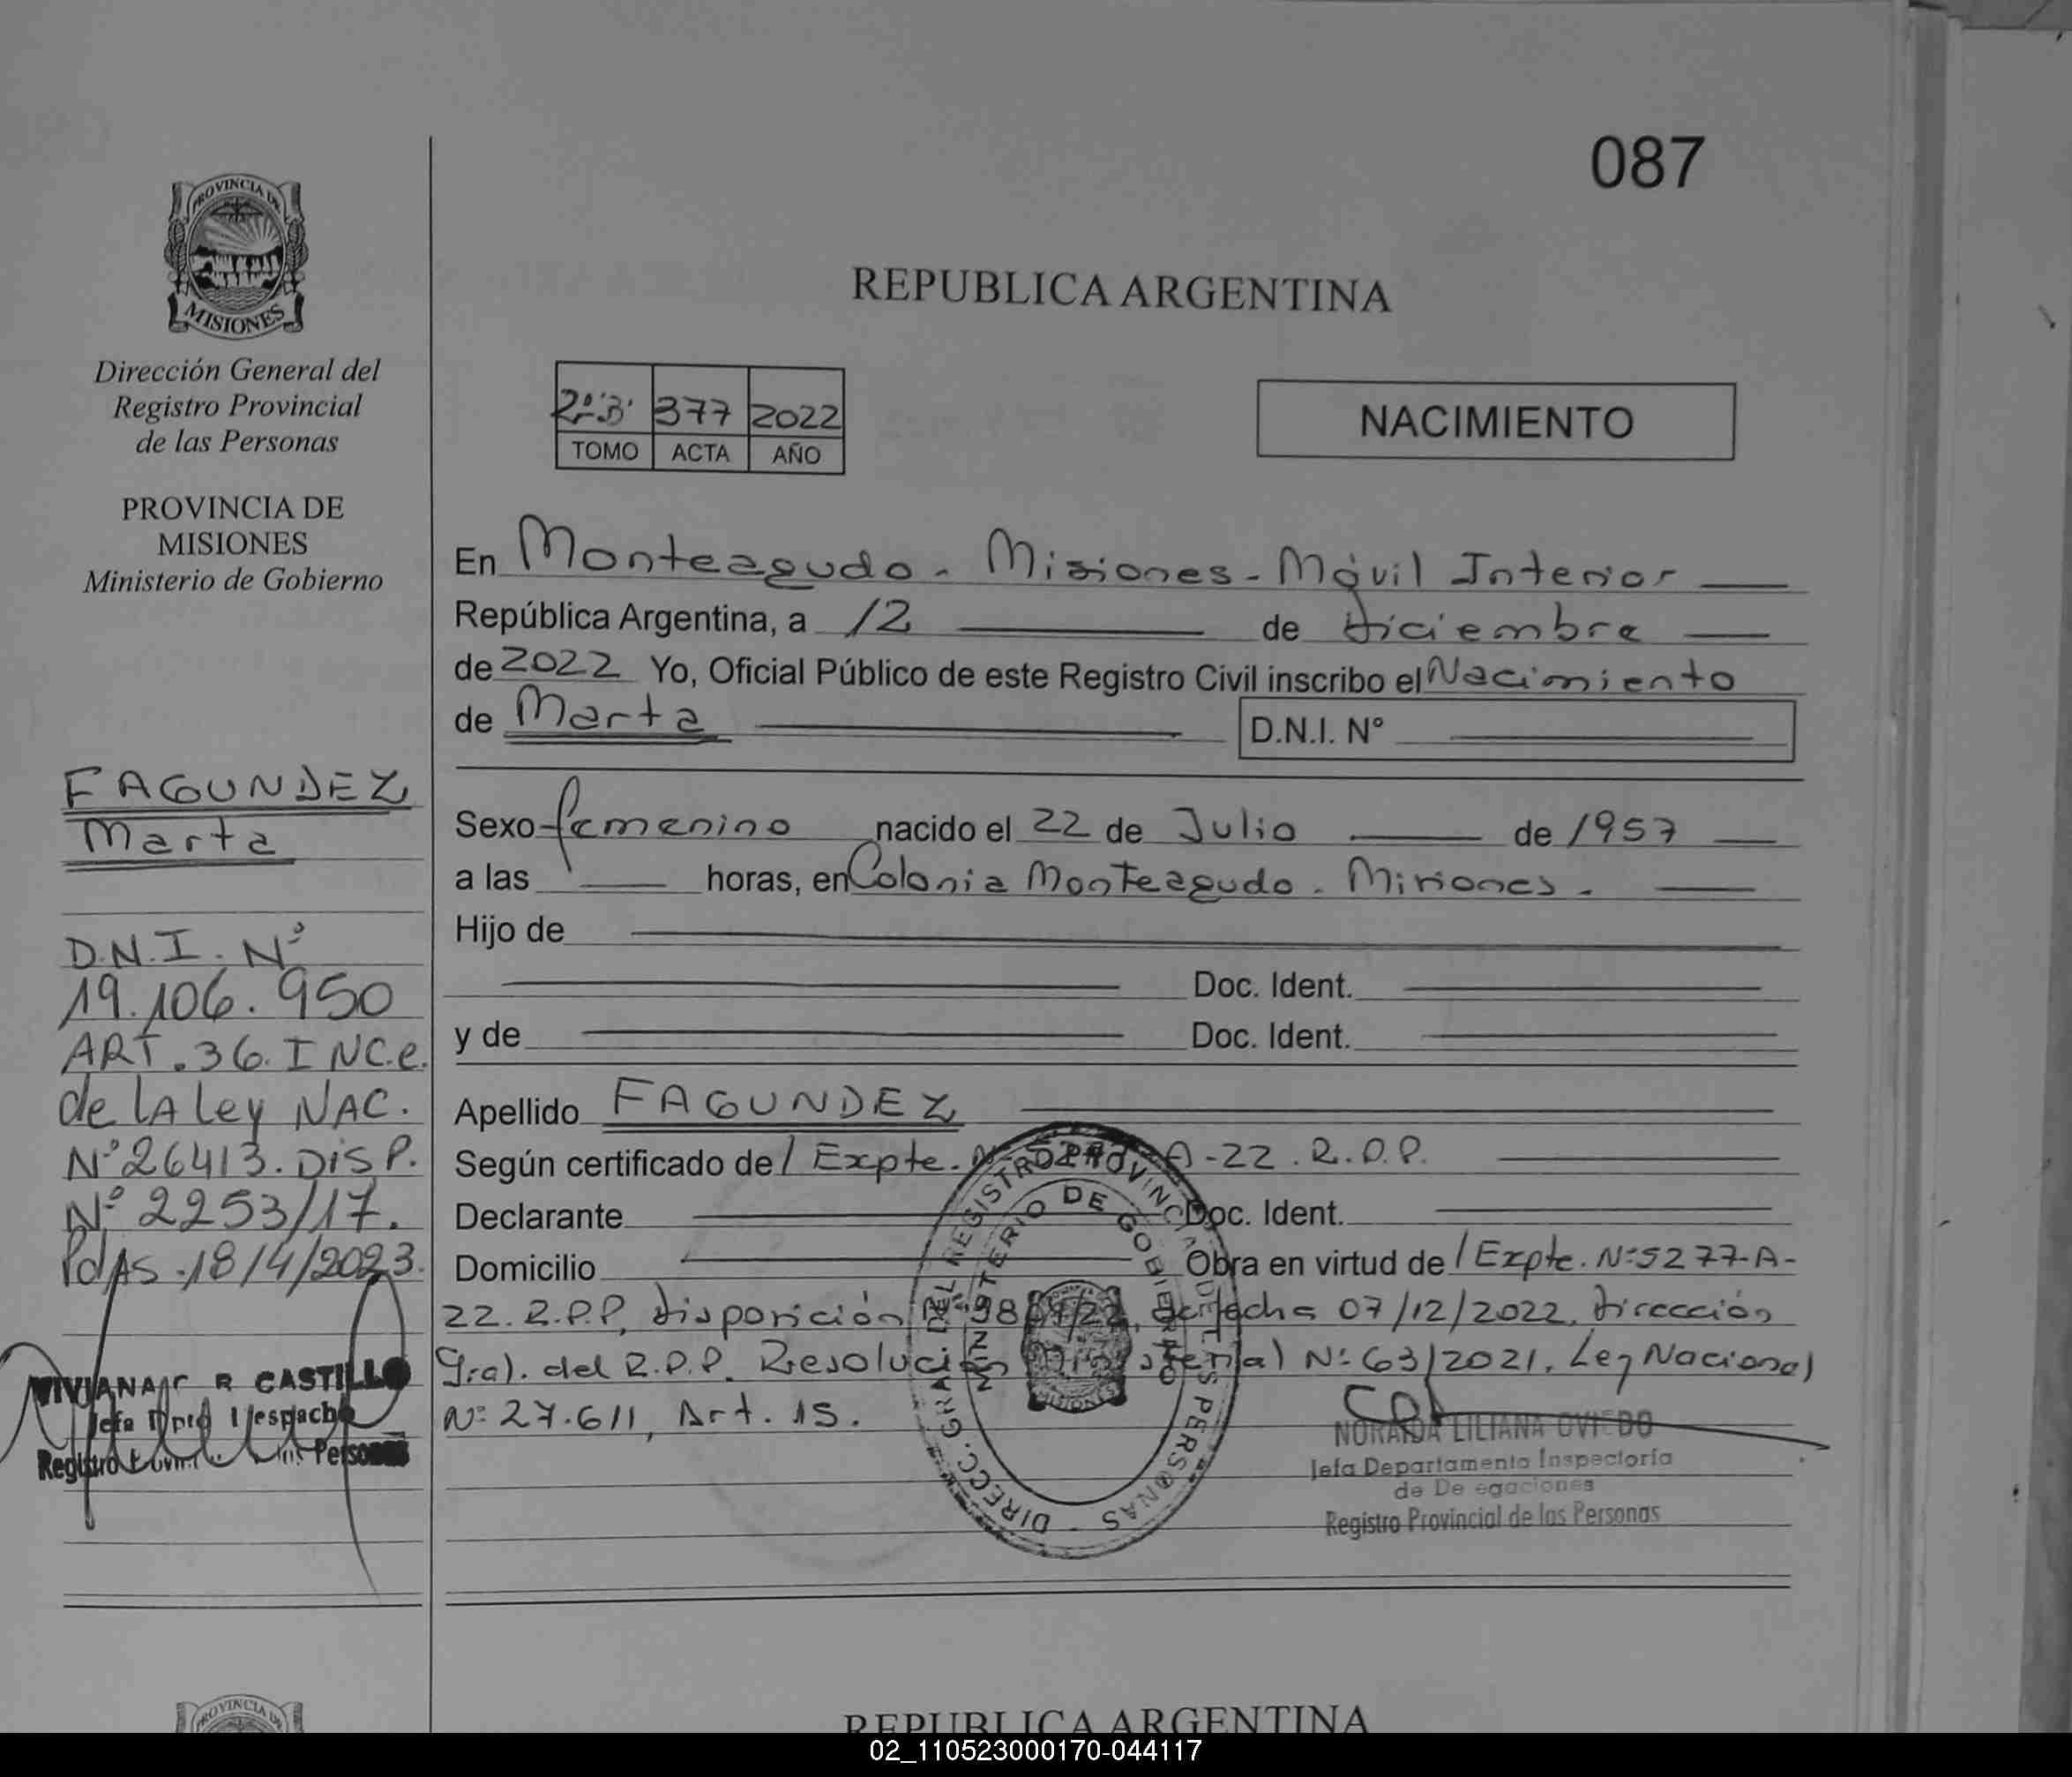 087
PROVINCIA DE
MISIONES
Dirección General del
Registro Provincial
de las Personas
PROVINCIA DE
MISIONES
Ministerio de Gobierno
FAGUNDEZ
Marta
D.N.I. Nº
19.106.950
ART.36.INC.e.
de LA Ley NAC.
Nº26413.DISP.
Nº 2253/17.
PdAS.18/4/2023.
VIVIANA R CASTILLO
Jefa Dpto Despacho
Registro Personas
REPUBLICA ARGENTINA
2º"B" 377 2022
TOMO ACTA AÑO
NACIMIENTO
En Monteagudo - Misiones - Móvil Interior
República Argentina, a 12 de diciembre
de 2022 Yo, Oficial Público de este Registro Civil inscribo el Nacimiento
de Marta D.N.I. Nº
Sexo femenino nacido el 22 de Julio de 1957
a las horas, en Colonia Monteagudo - Misiones.
Hijo de
Doc. Ident.
y de Doc. Ident.
Apellido FAGUNDEZ
Según certificado de / Expte. A-22.R.P.P.
Declarante Doc. Ident.
Domicilio Obra en virtud de / Expte. Nº5277-A-
22.R.P.P, disposición de fecha 07/12/2022, dirección
Gral. del R.P.P. Resolución Ministerial Nº 63/2021, Ley Nacional
Nº 27.611, Art. 15.
DIRECC. GRAL. DEL REGISTRO PROVINCIAL DE LAS PERSONAS
MINISTERIO DE GOBIERNO
NORAIDA LILIANA OVIEDO
Jefa Departamento Inspectoría
de De egaciones
Registro Provincial de las Personas
PROVINCIA DE
REPUBLICA ARGENTINA
02_110523000170-044117